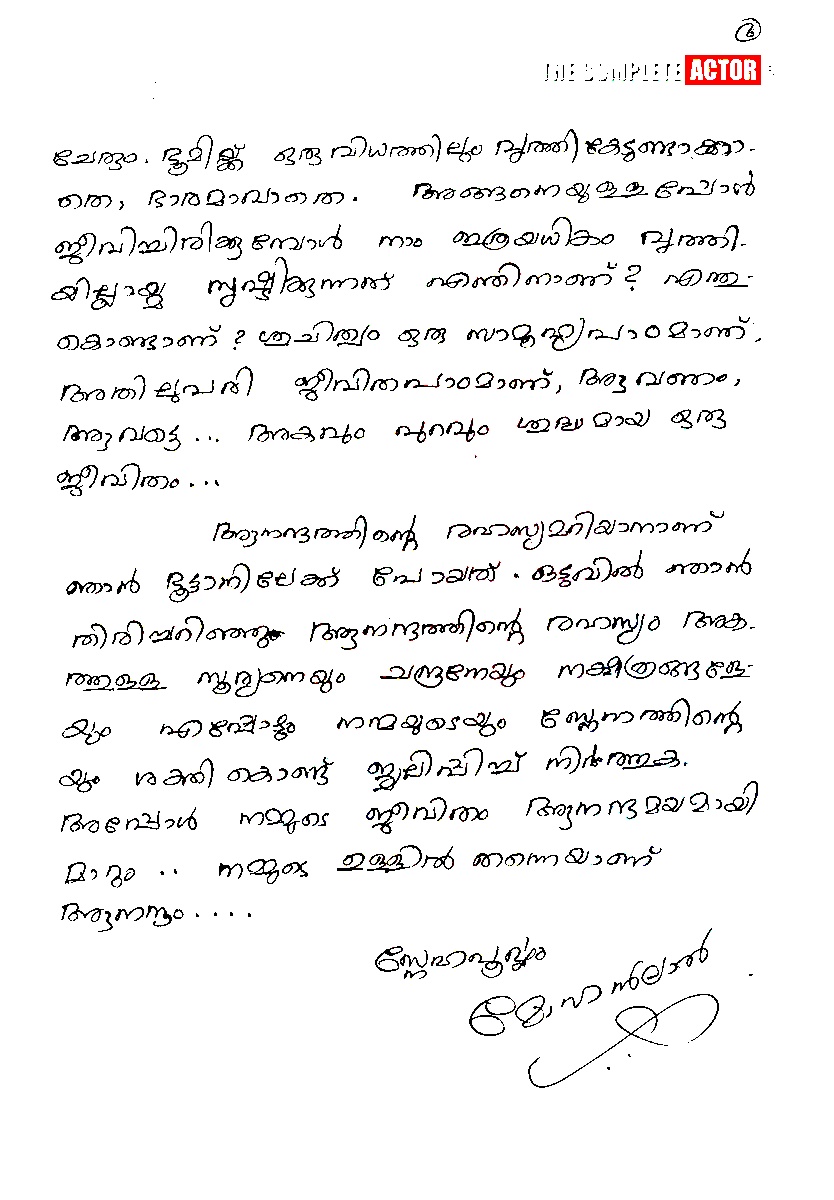 6
THE COMPLETE ACTOR
ചേരും. ഭൂമിയ്ക്ക് ഒരു വിധത്തിലും വൃത്തികേടുണ്ടാക്കാ-
തെ, ഭാരമാവാതെ. അങ്ങനെയുള്ളപ്പോൾ
ജീവിച്ചിരിക്കുമ്പോൾ നാം ഇത്രയധികം വൃത്തി-
യില്ലായ്മ സൃഷ്ടിക്കുന്നത് എന്തിനാണ്? എന്തു-
കൊണ്ടാണ്? ശുചിത്വം ഒരു സാമൂഹ്യപാഠമാണ്.
അതിലുപരി ജീവിതപാഠമാണ്, ആവണം,
ആവട്ടെ... അകവും പുറവും ശുദ്ധമായ ഒരു
ജീവിതം...
ആനന്ദത്തിന്റെ രഹസ്യമറിയാനാണ്
ഞാൻ ഭൂട്ടാനിലേക്ക് പോയത്. ഒടുവിൽ ഞാൻ
തിരിച്ചറിഞ്ഞു ആനന്ദത്തിന്റെ രഹസ്യം അക-
ത്തുള്ള സൂര്യനെയും ചന്ദ്രനേയും നക്ഷത്രങ്ങളേ-
യും എപ്പോഴും നന്മയുടെയും സ്നേഹത്തിന്റെ
യും ശക്തി കൊണ്ട് ജ്വലിപ്പിച്ച് നിർത്തുക.
അപ്പോൾ നമ്മുടെ ജീവിതം ആനന്ദമയമായി
മാറും .. നമ്മുടെ ഉള്ളിൽ തന്നെയാണ്
ആനന്ദം....
സ്നേഹപൂർവ്വം
മോഹൻലാൽ